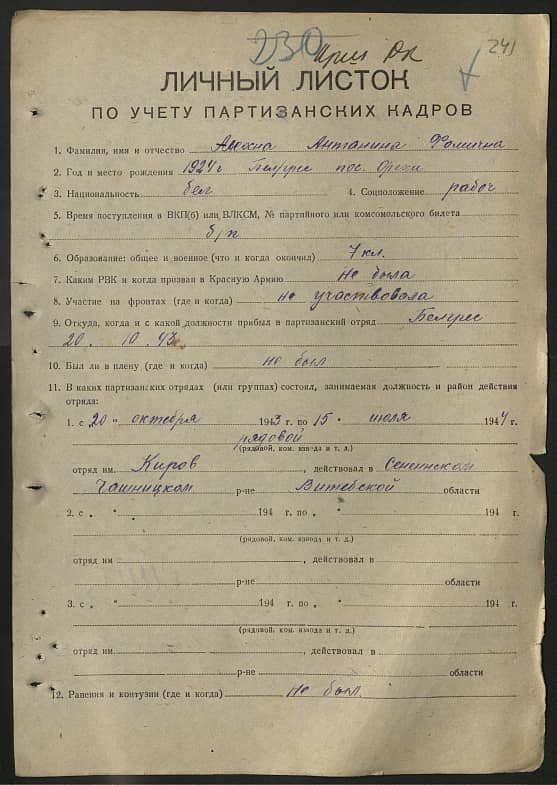 230
241
ЛИЧНЫЙ ЛИСТОК
ПО УЧЕТУ ПАРТИЗАНСКИХ КАДРОВ
1. Фамилия, имя и отчество Антанина Фомична
2. Год и место рождения 1924 г Белурес пос. Орехи
3. Национальность бел 4. Соцположение рабоч
5. Время поступления в ВКП(б) или ВЛКСМ, № партийного или комсомольского билета
б/п
6. Образование: общее и военное (что и когда окончил) 7 кл.
7. Каким РВК и когда призван в Красную Армию не была
8. Участие на фронтах (где и когда) не участвовала
9. Откуда, когда и с какой должности прибыл в партизанский отряд
20. 10. 43
10. Был ли в плену (где и когда) не был
11. В каких партизанских отрядах (или группах) состоял, занимаемая должность и район действия
отряда:
1. с „20 " октября 1943 г. по „15 " июля 1944 г.
рядовой
(рядовой, ком. взвода и т. д.)
отряд им. Киров, действовал в Сененском
Чашницком р-не Витебской области
2. с „ " 194 г. по „ " 194 г.
(рядовой, ком. взвода и т. д.)
отряд им. , действовал в
р-не области
3. с „ " 194 г. по „ " 194 г.
(рядовой, ком. взвода и т. д.)
отряд им. , действовал в
р-не области
12. Ранения и контузии (где и когда) не был.